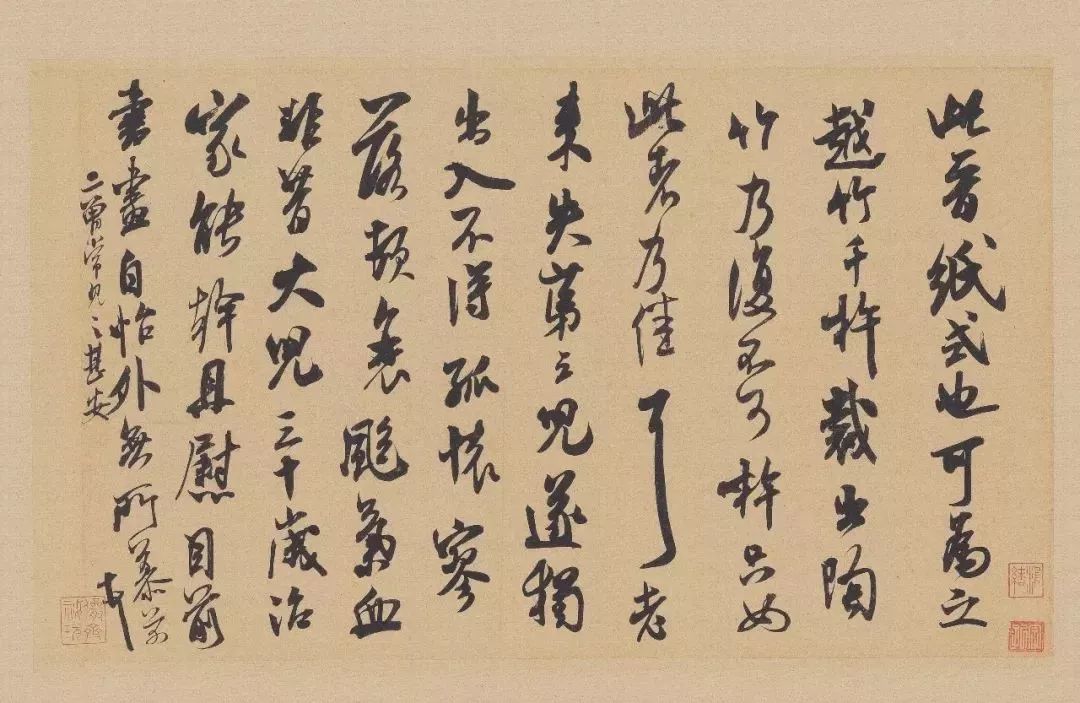 此晉紙式也可為之
越竹千杵裁出陶
竹乃復不可杵只如
此者乃佳耳老
來失第三兒遂獨
出入不得孤懷寥
落頓衰颯氣血
非昔大兒三十歲治
家能幹且慰目前
書畫自怡外無所慕芾頓首
二曾常見之甚安